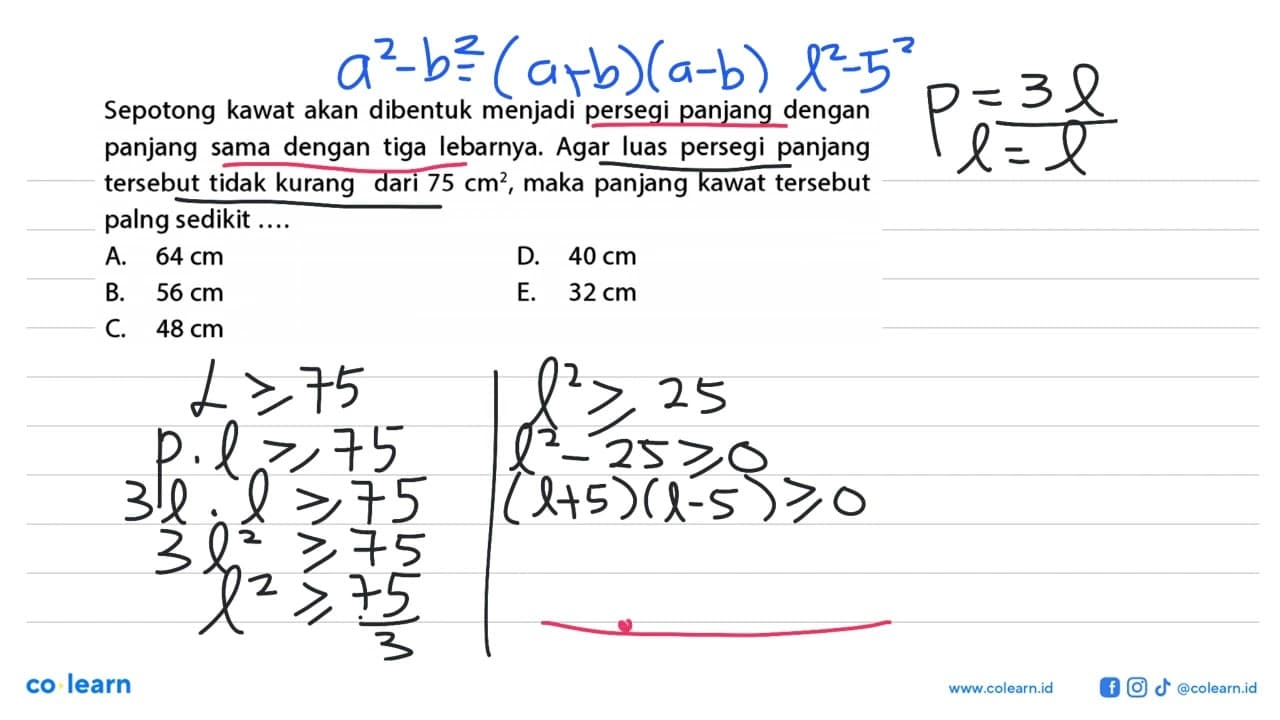 a²-b²=(a+b)(a-b) l²-5²
Sepotong kawat akan dibentuk menjadi persegi panjang dengan
panjang sama dengan tiga lebarnya. Agar luas persegi panjang
tersebut tidak kurang dari 75 cm², maka panjang kawat tersebut
palng sedikit ....
A. 64 cm
B. 56 cm
C. 48 cm
D. 40 cm
E. 32 cm
p = 3l
l = l
L ≥ 75
p.l ≥ 75
3l . l ≥ 75
3l² ≥ 75
l² ≥ 75/3
l² ≥ 25
l² - 25 ≥ 0
(l+5)(l-5) ≥ 0
co learn
www.colearn.id
@colearn.id